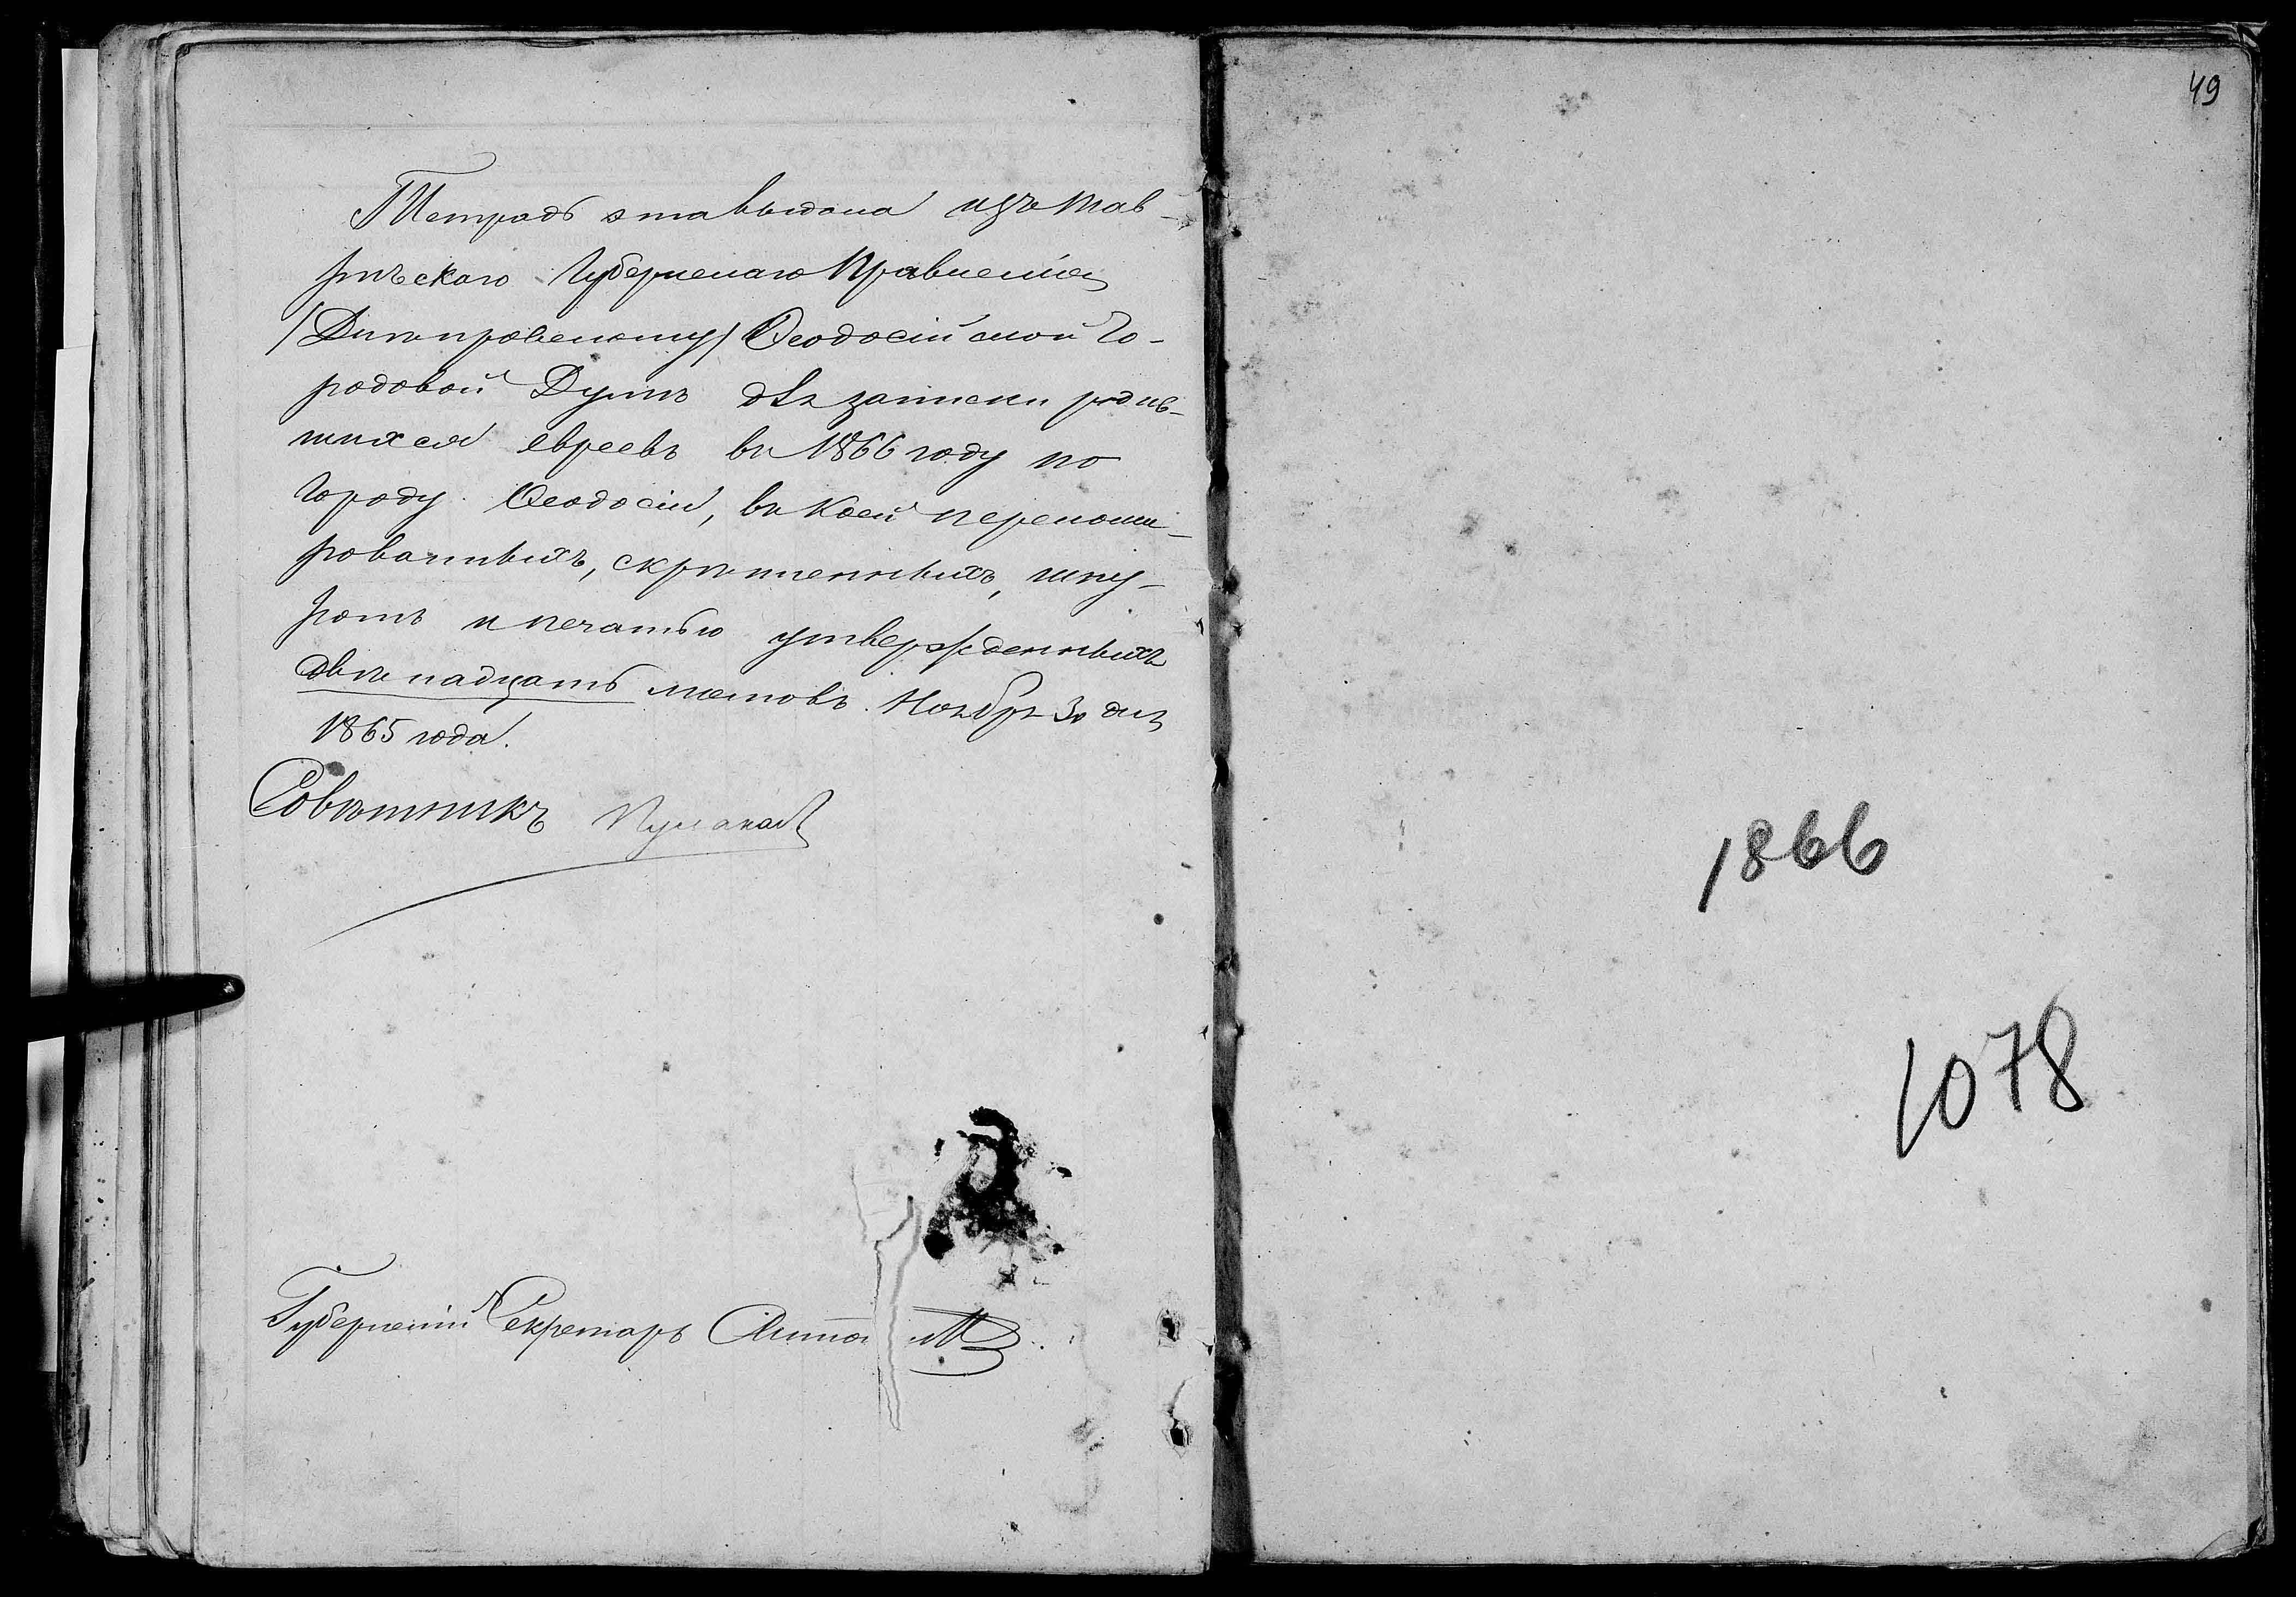 Тетрадь эта выдана изъ Тав-
рическаго Губернскаго Правленія
/Днепровскому/ Ѳеодосійской Го-
родовой Думѣ для записки родив-
шихся евреевъ въ 1866 году по
городу Ѳеодосіи, въ коей перенуме-
рованныхъ, скрѣпленныхъ, шну-
ромъ и печатью утвержденныхъ
двѣнадцать листовъ. Ноября 30 дня
1865 года.
Совѣтникъ
Губернскій Секретарь
49
1866
1078